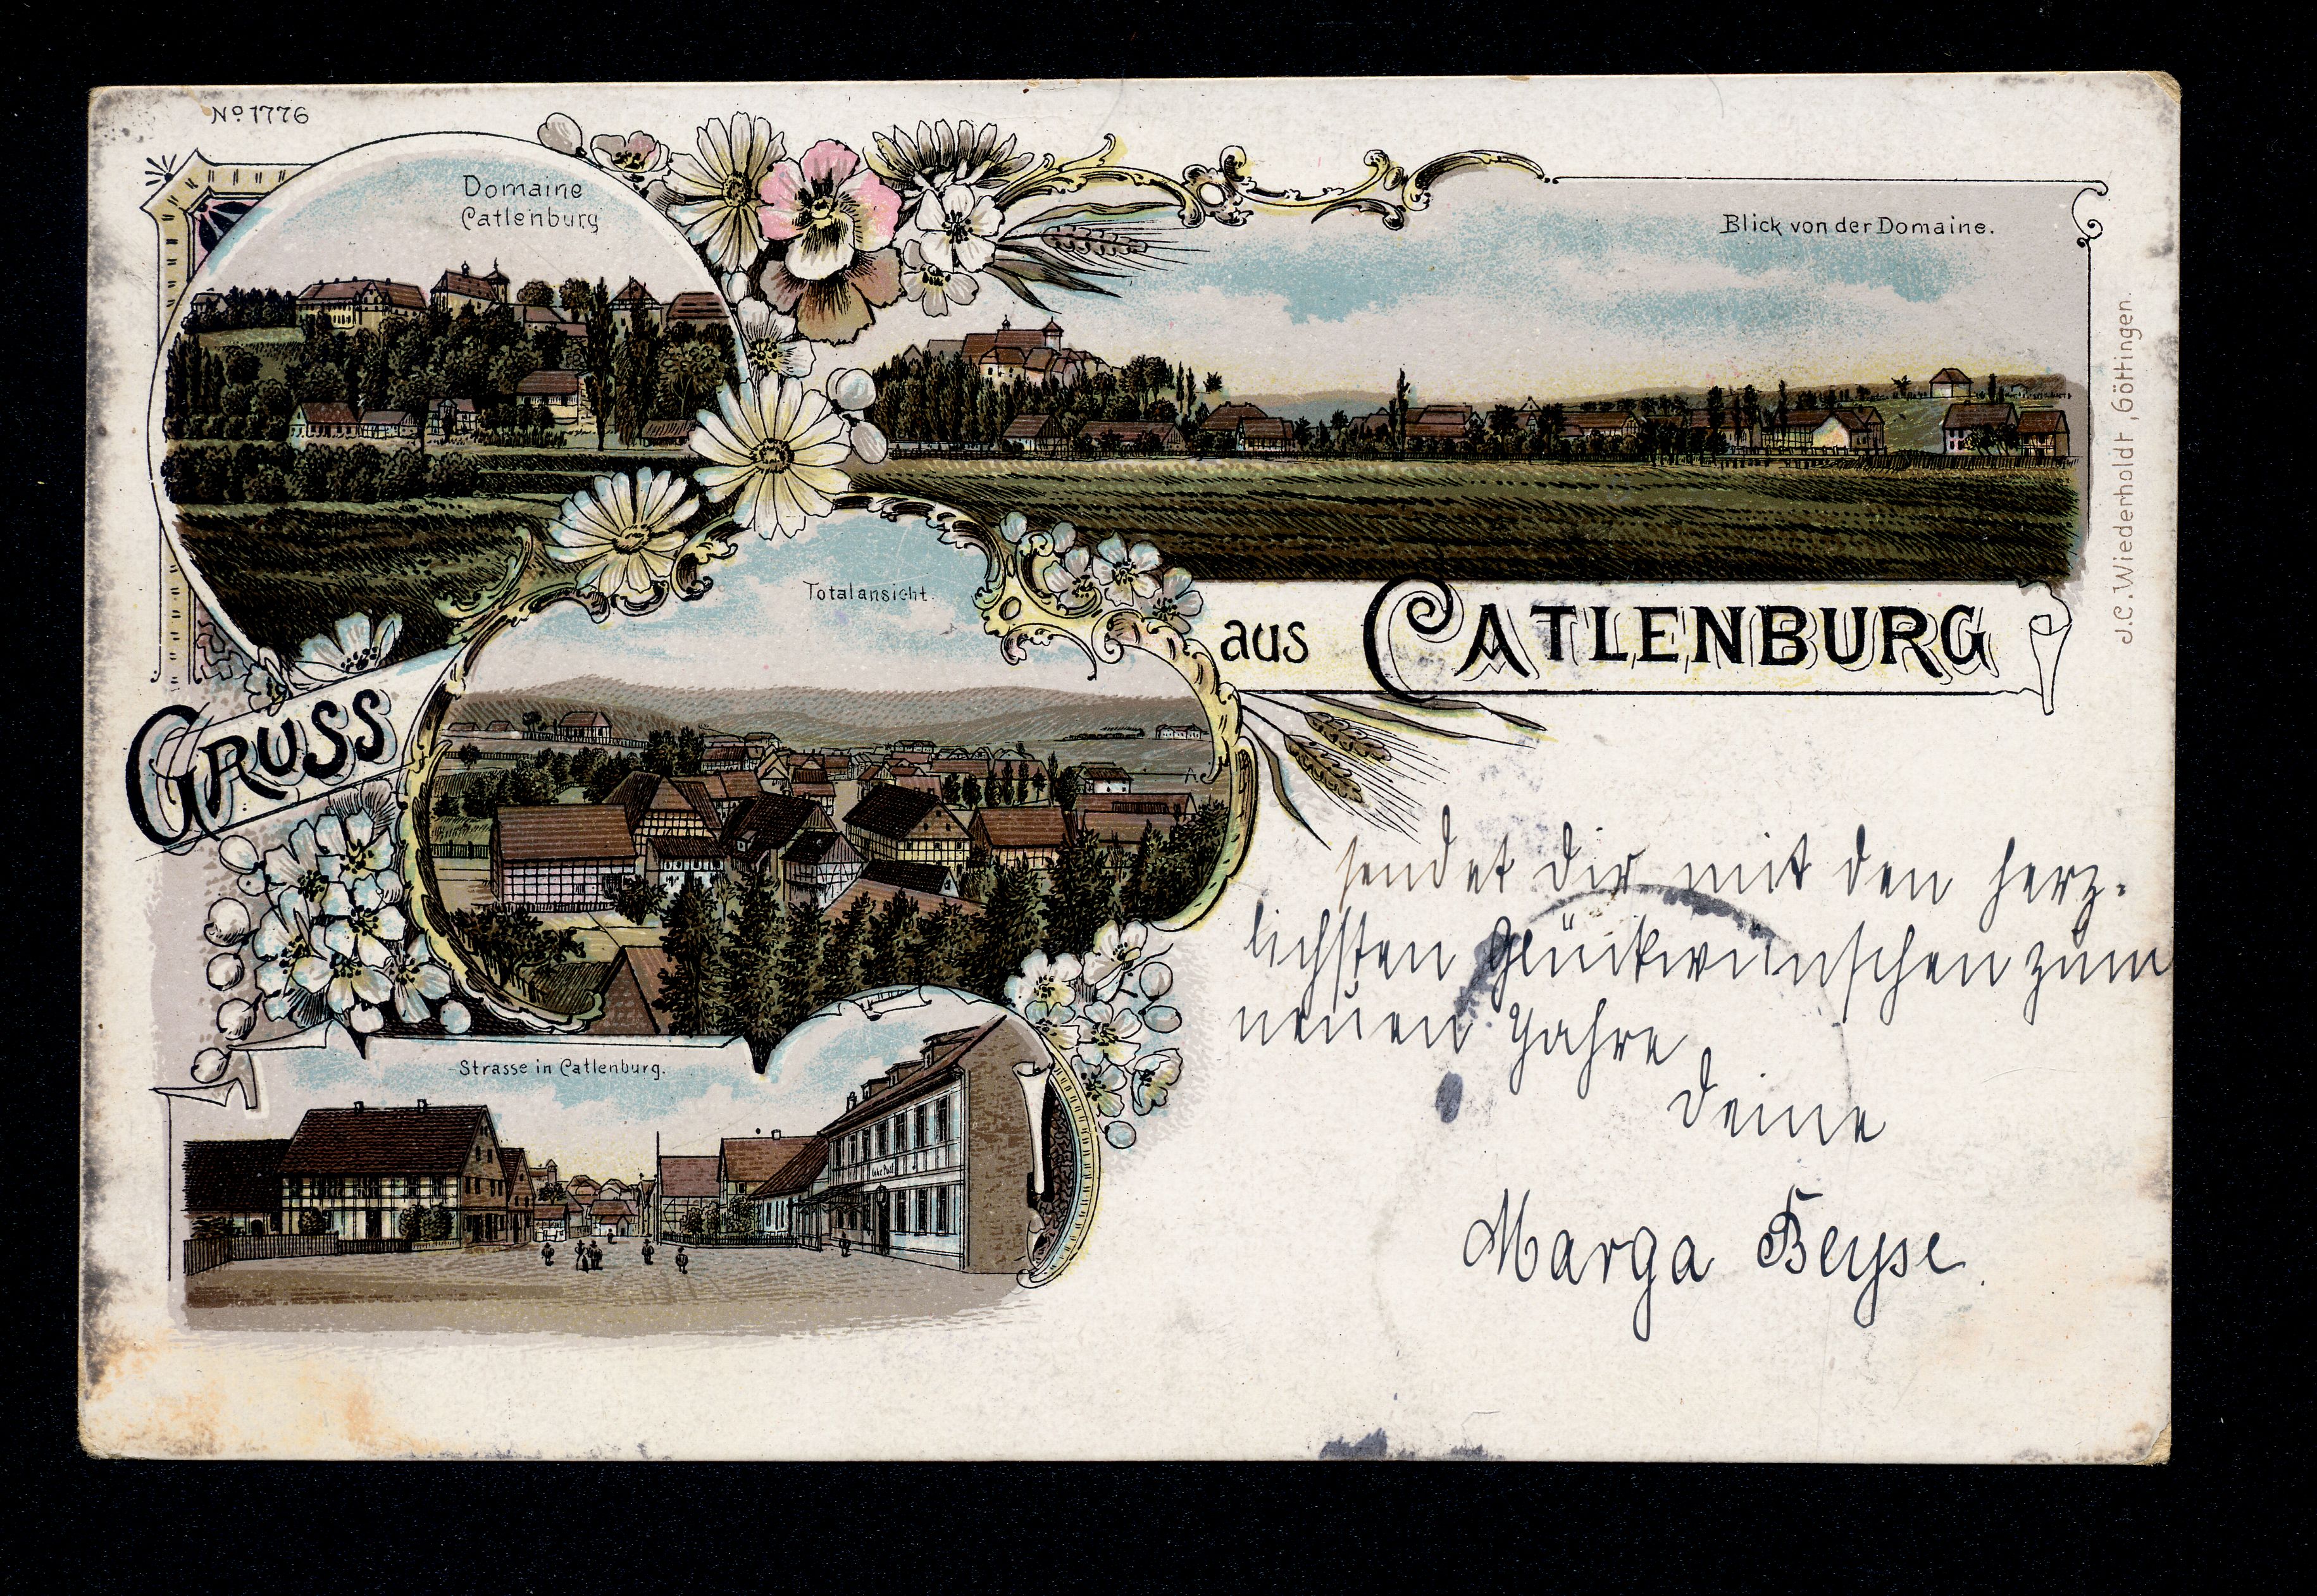 No 1776
Domaine
Catlenburg
Blick von der Domaine.
J.C. Wiederholdt, Göttingen.
Totalansicht.
GRUSS aus CATLENBURG
Strasse in Catlenburg.
sendet dir mit den herz-
lichsten Glückwünschen zum
neuen Jahre
deine
Marga Beyse.